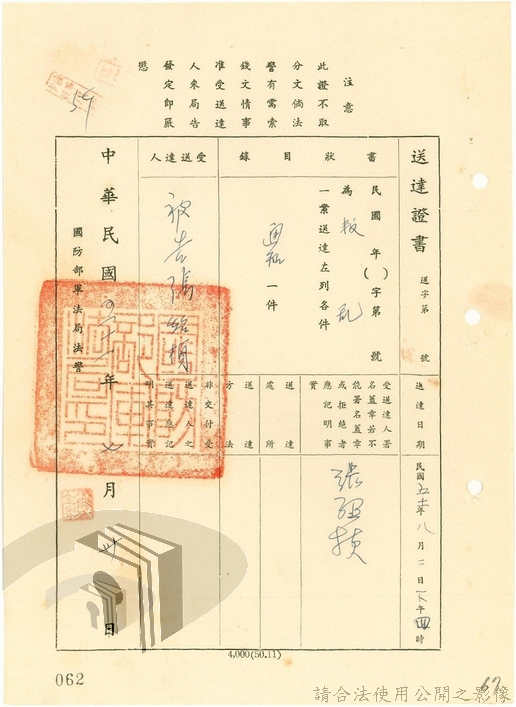 注意
此證不取
分文倘法
警有需索
錢文情事
准受送達
人來局告
發定即嚴
懲
59
送達證書
送字第 號
書狀
民國 年( )字第 號
為叛亂
一案送達左列各件
目錄
通知一件
受送達人
被告張
中華民國五十一年七月卅日
國防部軍法局法警
送達日期
民國五十一年八月二日下午四時
受送達人署
名蓋章若不
能署名蓋章
或拒絕者
應記明事
實
送達處所
送達方法
非交付受
送達人之
送達應記
明其事實
4,000(50.11)
062
67
請合法使用公開之影像